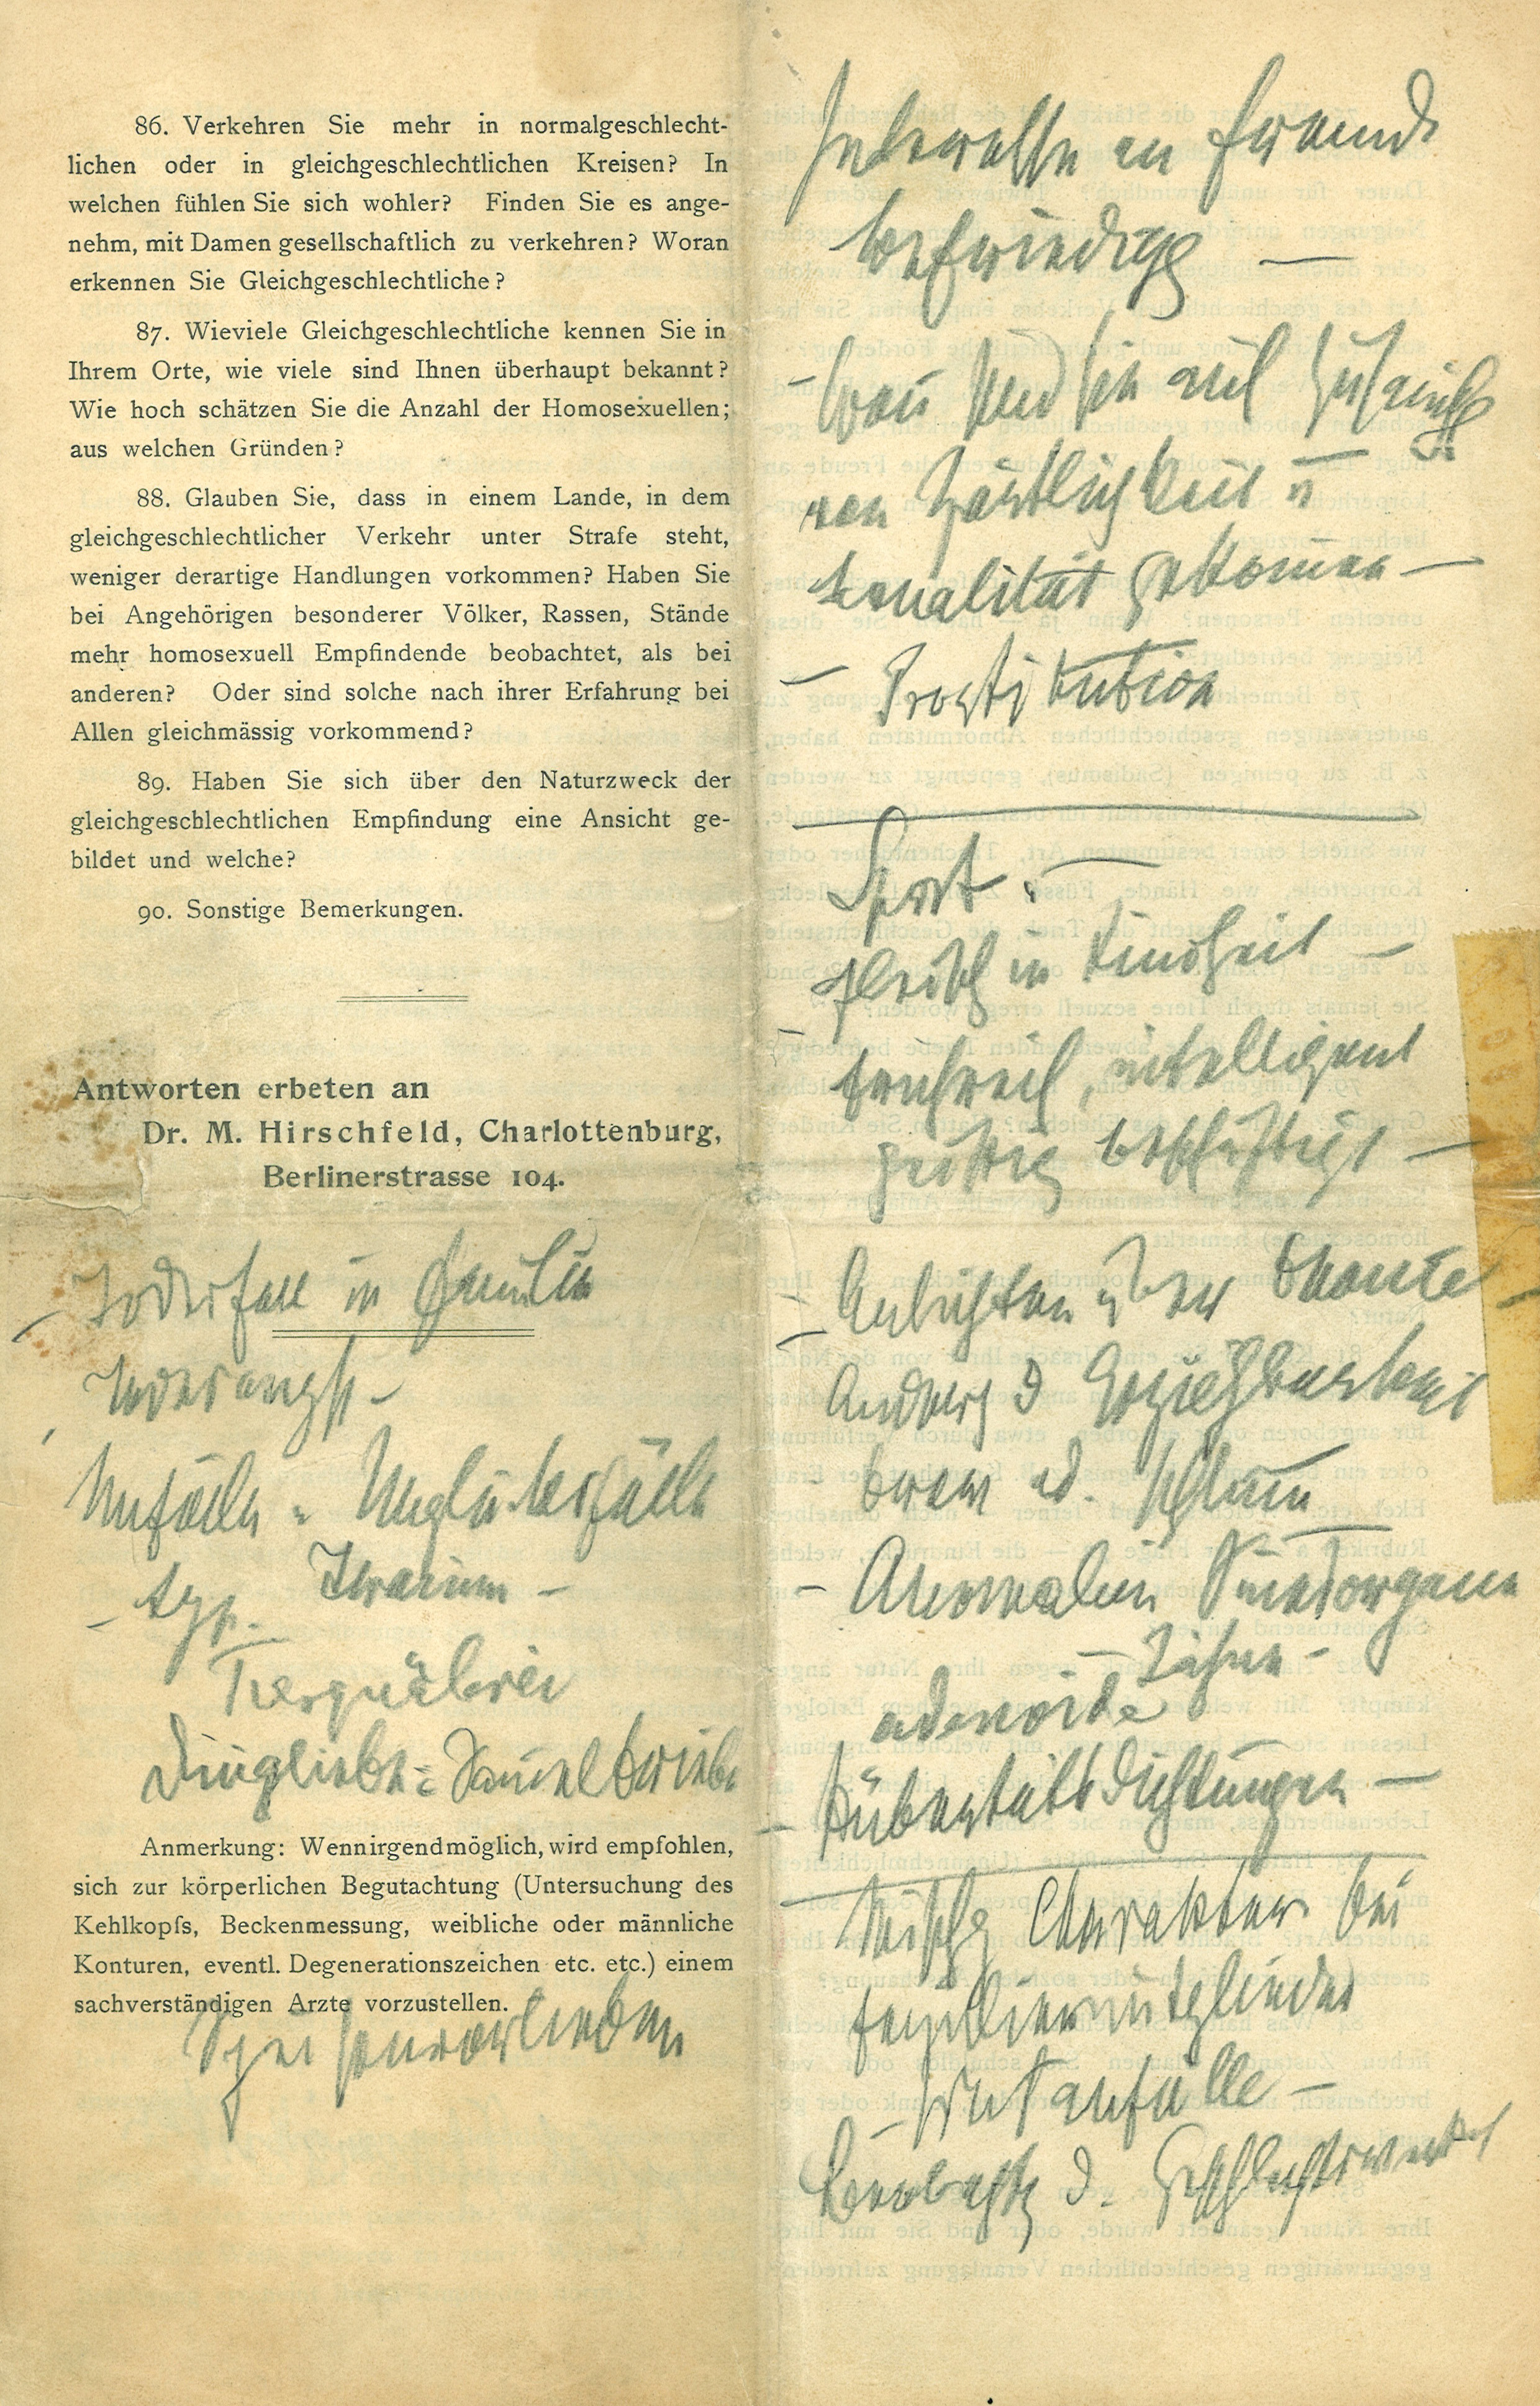 86. Verkehren Sie mehr in normalgeschlecht-
lichen oder in gleichgeschlechtlichen Kreisen? In
welchen fühlen Sie sich wohler? Finden Sie es ange-
nehm, mit Damen gesellschaftlich zu verkehren? Woran
erkennen Sie Gleichgeschlechtliche?
87. Wieviele Gleichgeschlechtliche kennen Sie in
Ihrem Orte, wie viele sind Ihnen überhaupt bekannt?
Wie hoch schätzen Sie die Anzahl der Homosexuellen;
aus welchen Gründen?
88. Glauben Sie, dass in einem Lande, in dem
gleichgeschlechtlicher Verkehr unter Strafe steht,
weniger derartige Handlungen vorkommen? Haben Sie
bei Angehörigen besonderer Völker, Rassen, Stände
mehr homosexuell Empfindende beobachtet, als bei
anderen? Oder sind solche nach ihrer Erfahrung bei
Allen gleichmässig vorkommend?
89. Haben Sie sich über den Naturzweck der
gleichgeschlechtlichen Empfindung eine Ansicht ge-
bildet und welche?
90. Sonstige Bemerkungen.
Antworten erbeten an
Dr. M. Hirschfeld, Charlottenburg,
Berlinerstrasse 104.
– Todesfall in Familie
Todesangst –
Unfälle u Unglücksfälle
– typ. Träume –
Tierquälerei
Dingliebe = Sammeltriebe
Anmerkung: Wenn irgend möglich, wird empfohlen,
sich zur körperlichen Begutachtung (Untersuchung des
Kehlkopfs, Beckenmessung, weibliche oder männliche
Konturen, eventl. Degenerationszeichen etc. etc.) einem
sachverständigen Arzte vorzustellen.
Speisenvorlieben
Interesse an Fremd
–
– Wann sind Sie auf
von Zärtlichkeit u
sexualität gekommen –
– Prostitution
Sport –
in Kindheit –
– frühreif, intelligent
geistig beschäftigt –
– Ansichten über
d Erziehbarkeit
– Anomalien Sinnesorgane
– Zähne –
adenoide
– Pubertätsdichtungen –
Charakter bei
Familienmitglieder
– Wutanfälle –
d.